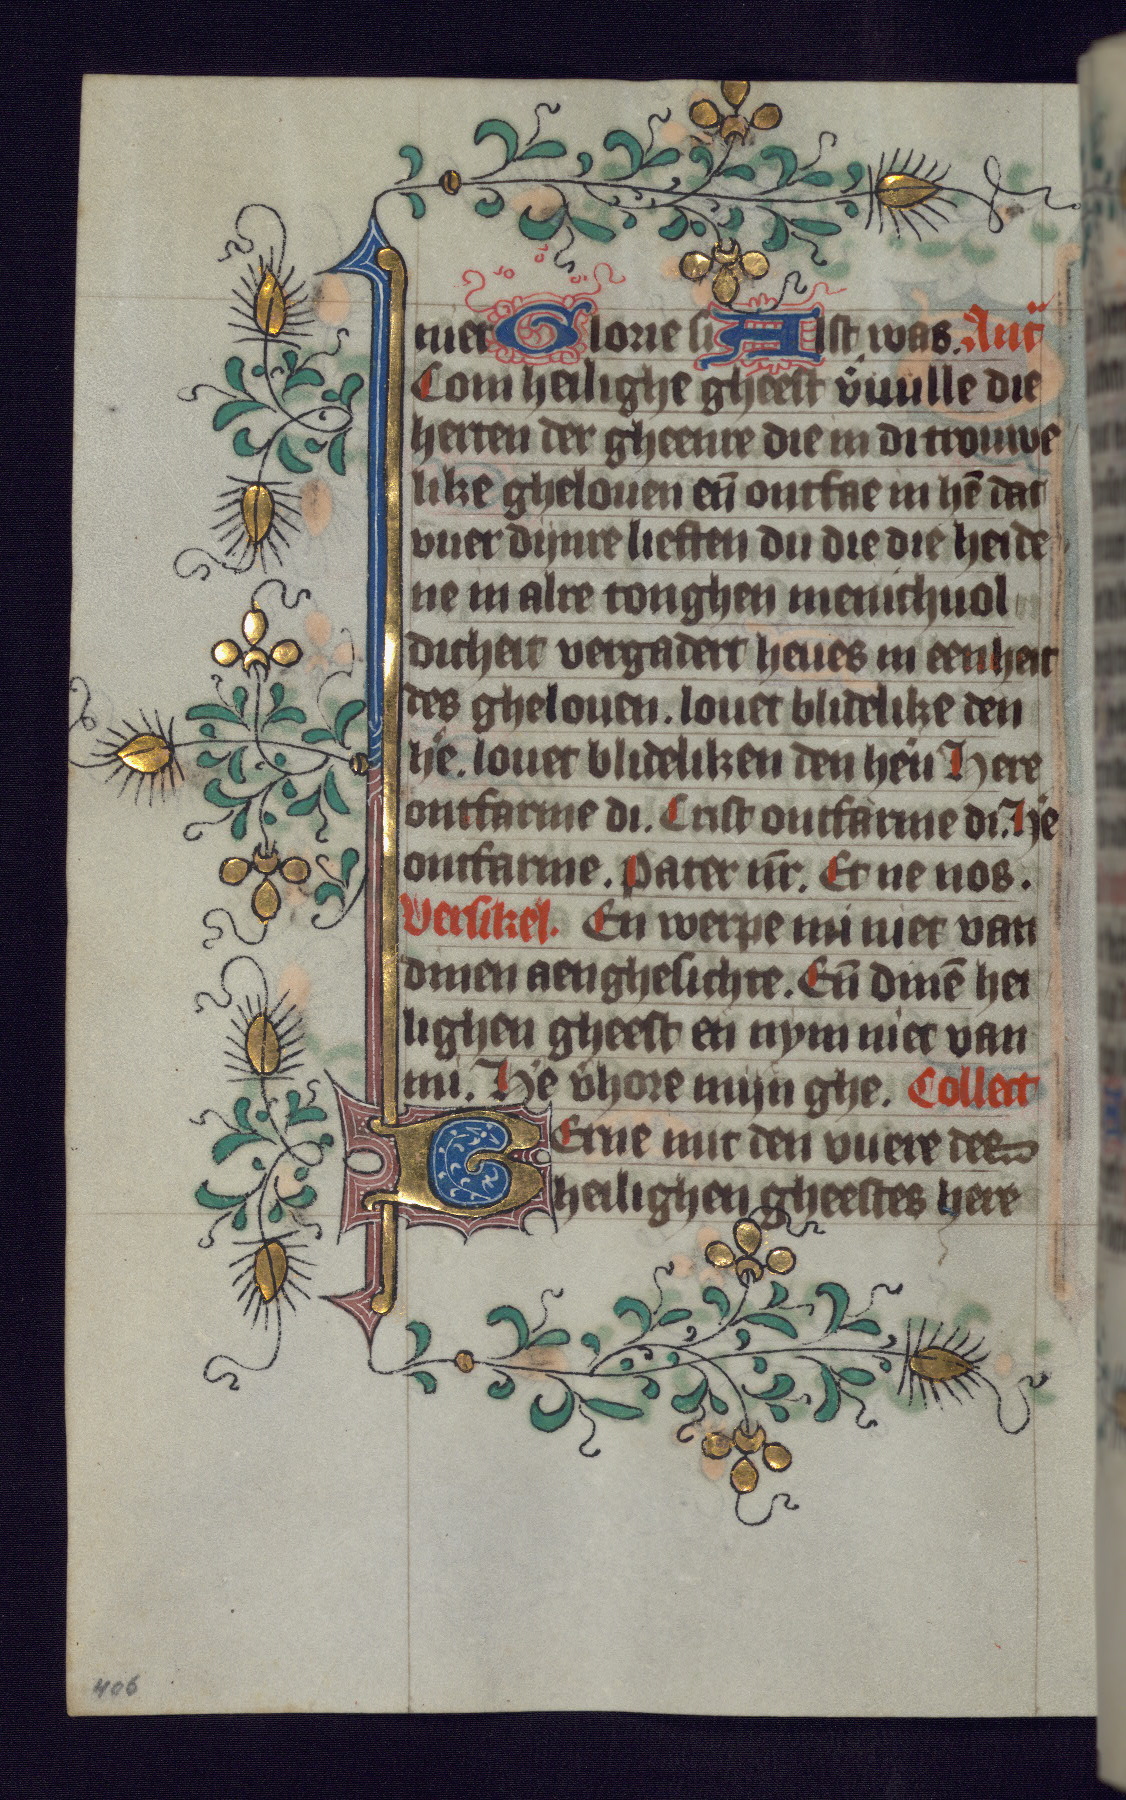 niet Glorie si Alst was. Ant̄
Com heilighe gheest v̉uulle die
herten der gheenre die in di trouwe
like ghelouen en̄ ontfae in hē dat
vuer dijnre lieften du die die heide
ne in alre tonghen menichuol
dicheit vergadert heues in eenheit
des ghelouen. louet blidelike den
h̉e. louet blideliken den h̉en Here
ontfarme di. Crist ontfarme di. H̉e
ontfarme. Pater nr̄. Et ne nos.
Versikel. En werpe mi niet van
dinen aenghesichte. En̄ dinē hei
lighen gheest en nym niet van
mi. H̉e v̉hore mijn ghe. Collect
Erne mit den vuere des
heilighen gheestes here
406